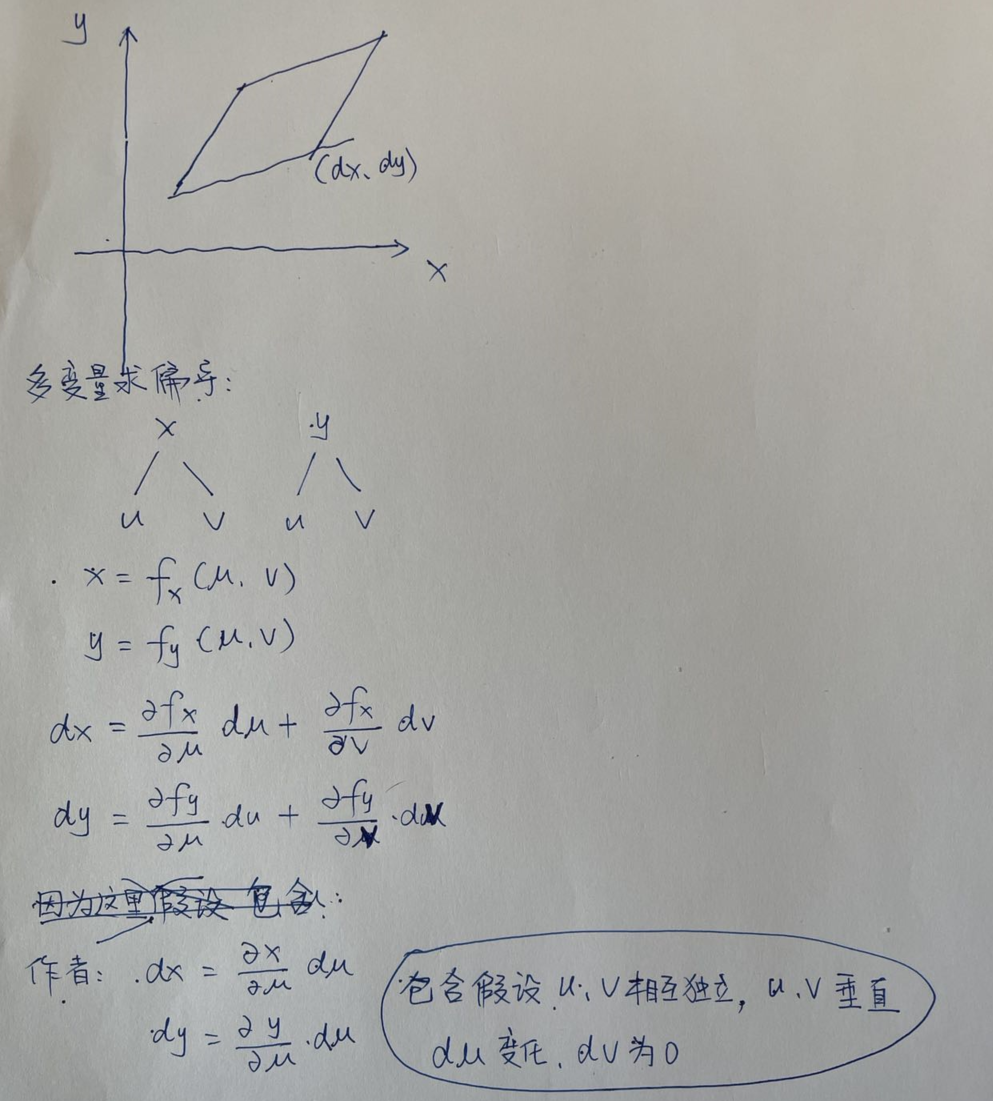 y
(dx、dy)
x
多变量求偏导:
x y
u v u v
x = fx (μ, v)
y = fy (μ, v)
dx = ∂fx/∂μ dμ + ∂fx/∂v dv
dy = ∂fy/∂μ ·du + ∂fy/∂v ·dv
因为这里假设包含:
作者: dx = ∂x/∂μ dμ
dy = ∂y/∂μ ·dμ
包含假设 u、v相互独立, u、v 垂直
dμ 变化、dv为0